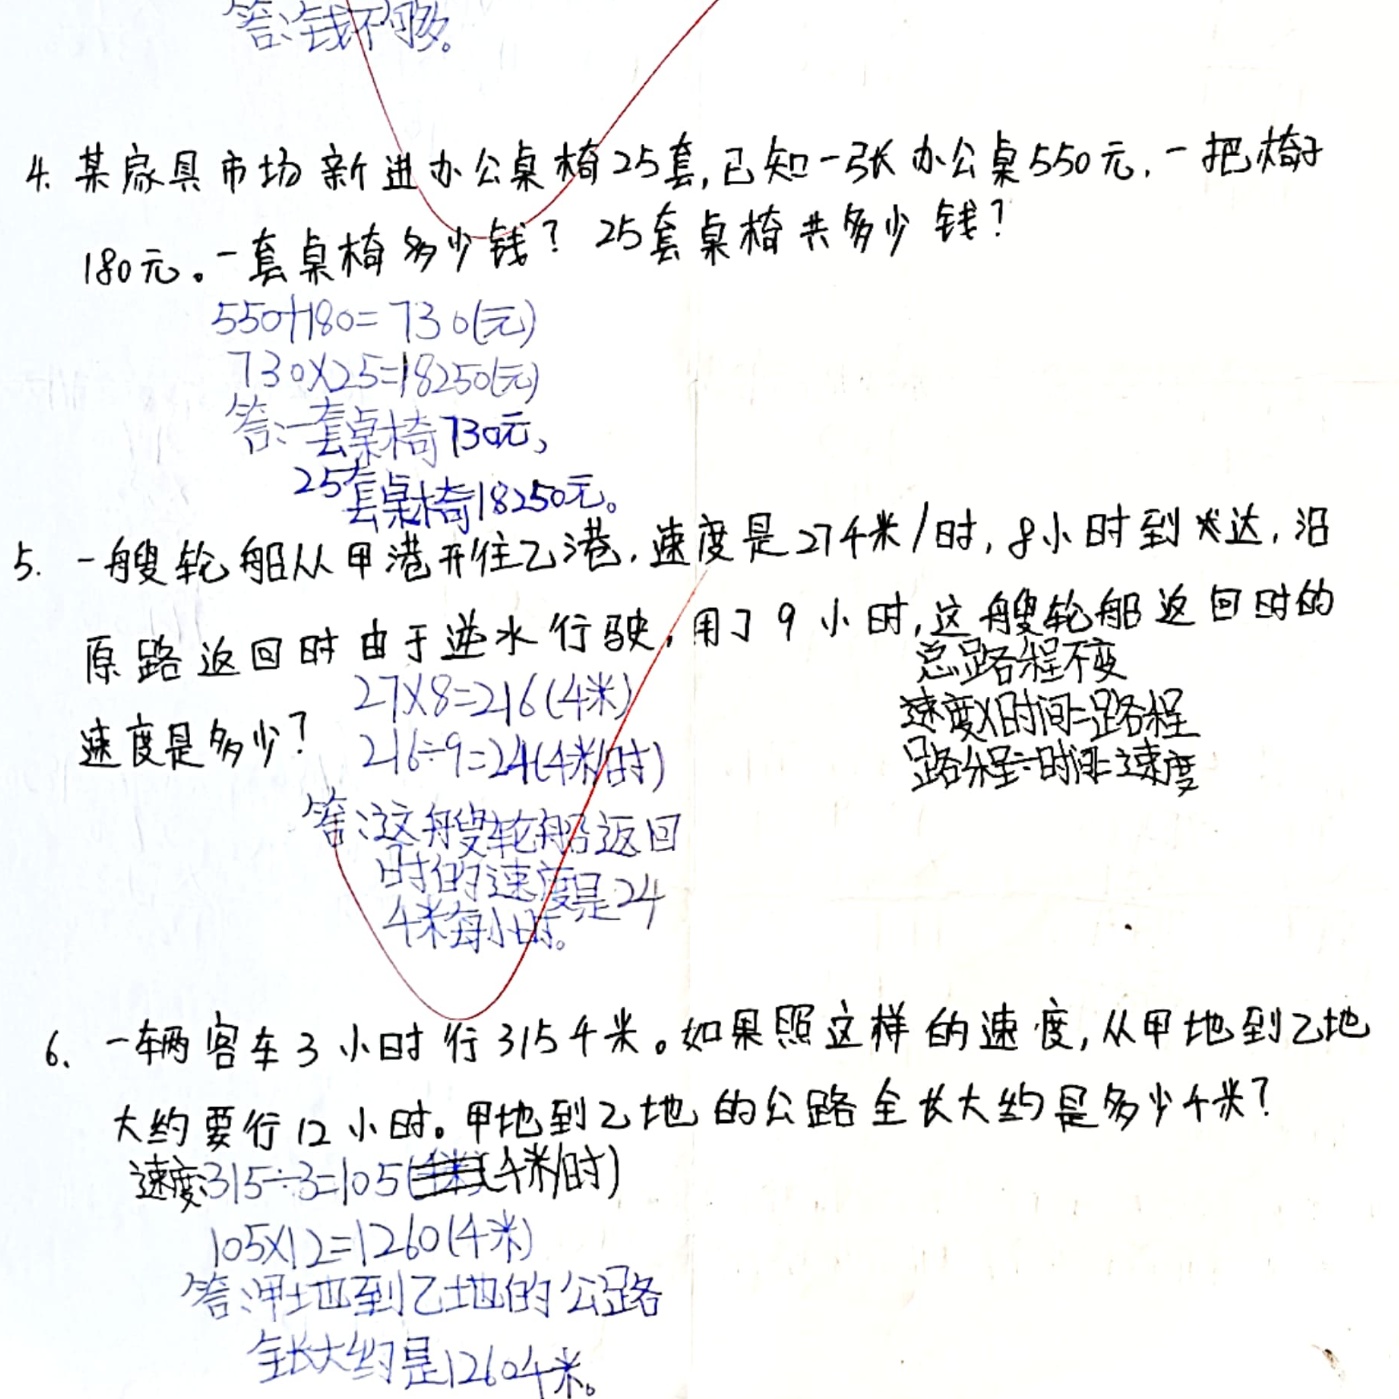 答:钱不够。
4. 某家具市场新进办公桌椅25套,已知一张办公桌550元,一把椅子
180元。一套桌椅多少钱?25套桌椅共多少钱?
550+180=730(元)
730×25=18250(元)
答:一套桌椅730元,
25套桌椅18250元。
5. 一艘轮船从甲港开往乙港,速度是27千米/时,8小时到达,沿
原路返回时由于逆水行驶,用了9小时,这艘轮船返回时的
速度是多少?
总路程不变
速度×时间=路程
路程÷时间=速度
27×8=216(千米)
216÷9=24(千米/时)
答:这艘轮船返回
时的速度是24
千米每小时。
6. 一辆客车3小时行315千米。如果照这样的速度,从甲地到乙地
大约要行12小时。甲地到乙地的公路全长大约是多少千米?
速度:315÷3=105(千米/时)
105×12=1260(千米)
答:甲地到乙地的公路
全长大约是1260千米。